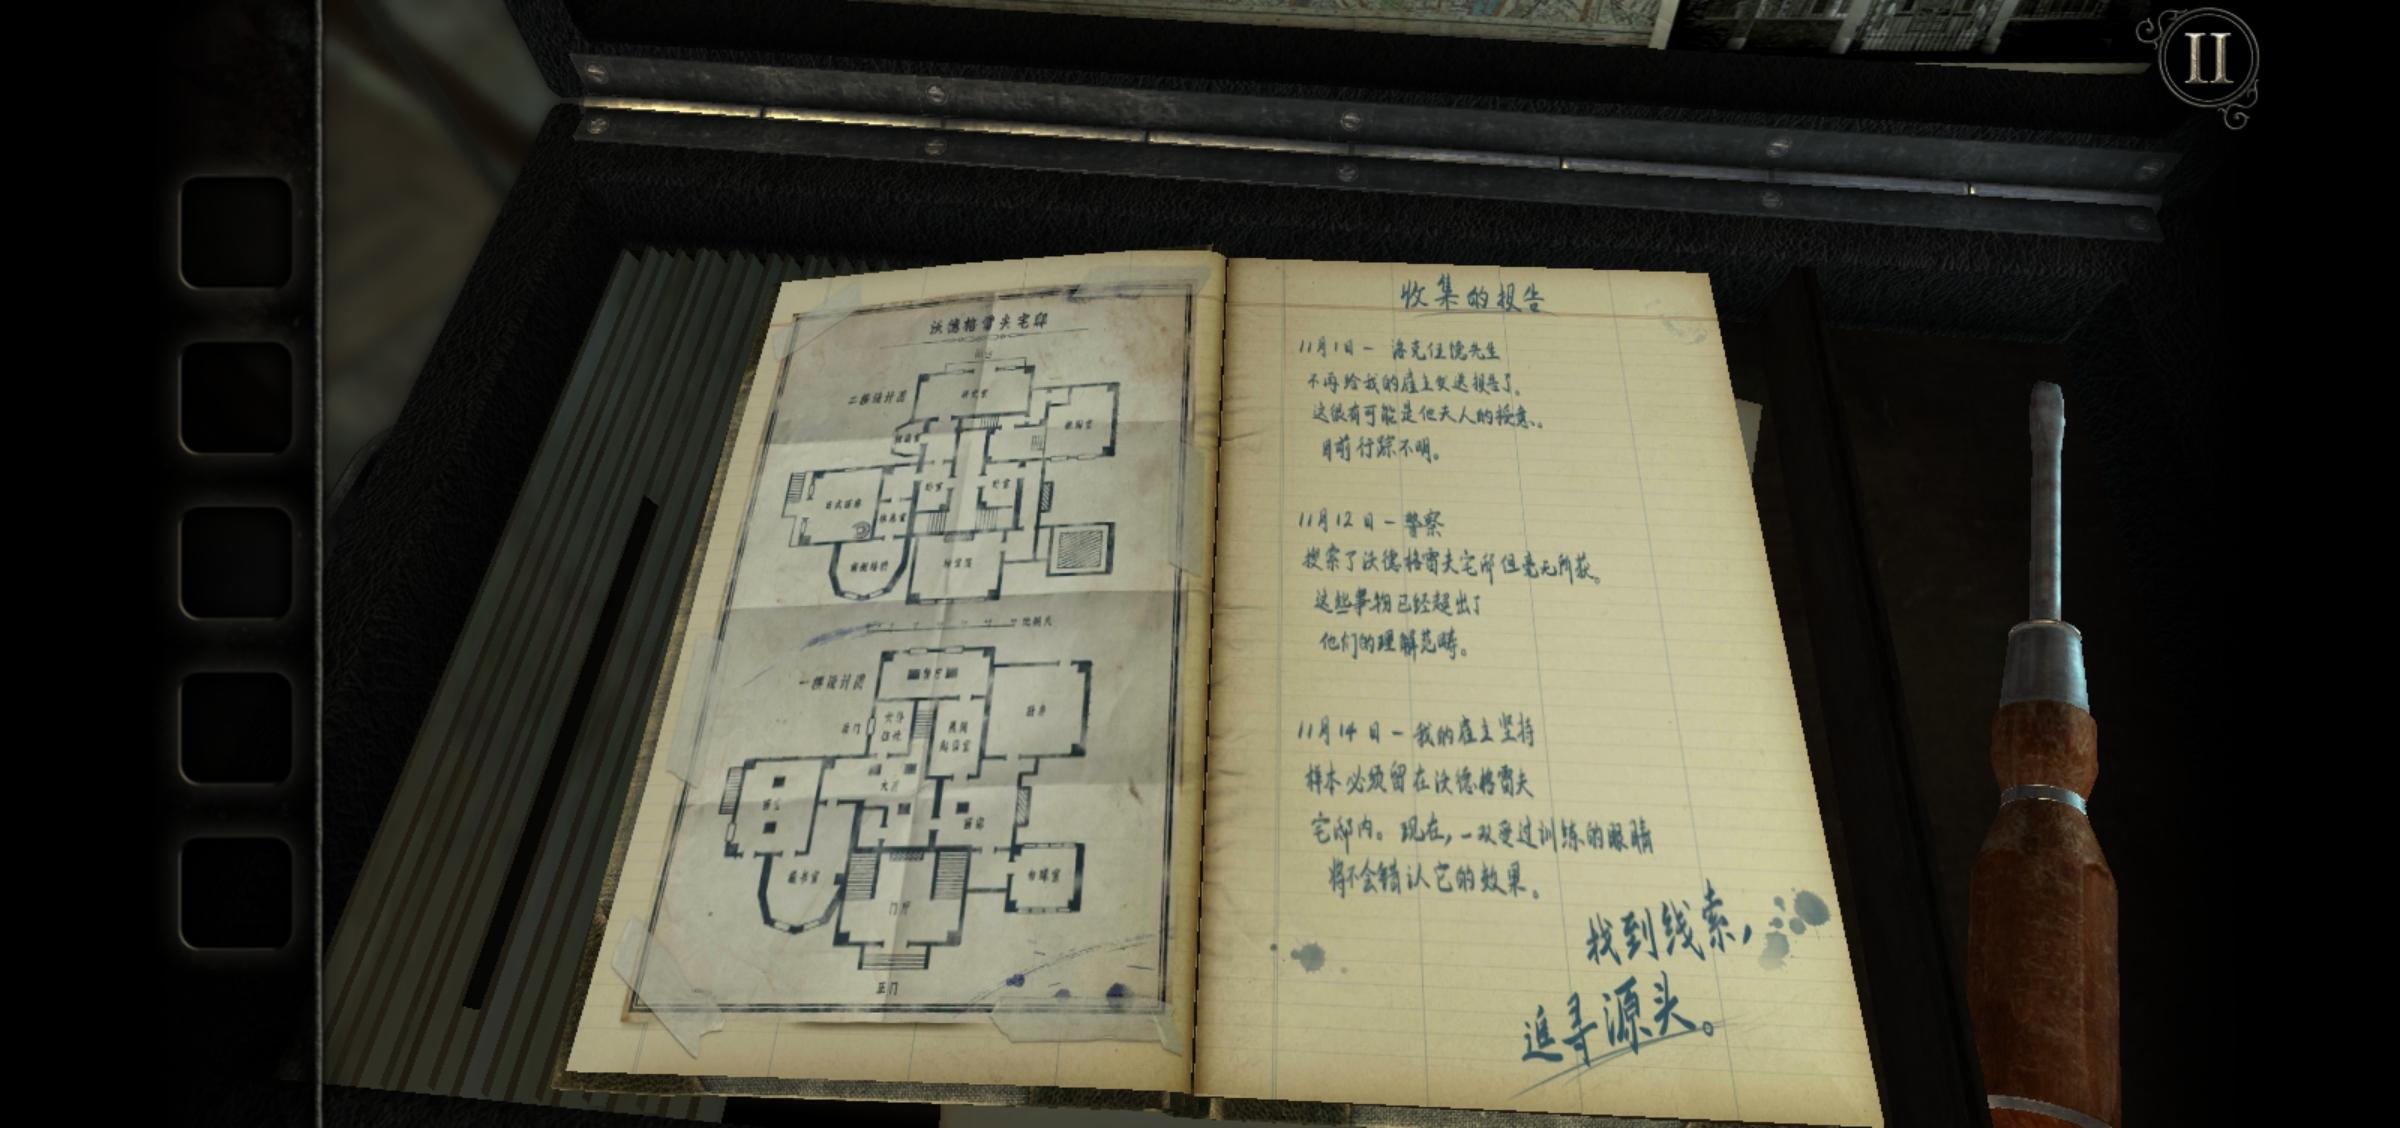 II
沃德格雷夫宅邸
二楼设计图
研究室
卧室
卧室
比例尺
一楼设计图
后门
厨房
大厅
画廊
藏书室
台球室
门厅
正门
收集的报告
11月1日 - 洛克伍德先生
不再给我的雇主发送报告了。
这很有可能是他夫人的授意。
目前行踪不明。
11月12日 - 警察
搜索了沃德格雷夫宅邸但毫无所获。
这些事物已经超出了
他们的理解范畴。
11月14日 - 我的雇主坚持
样本必须留在沃德格雷夫
宅邸内。现在,一双受过训练的眼睛
将不会错认它的效果。
找到线索,
追寻源头。